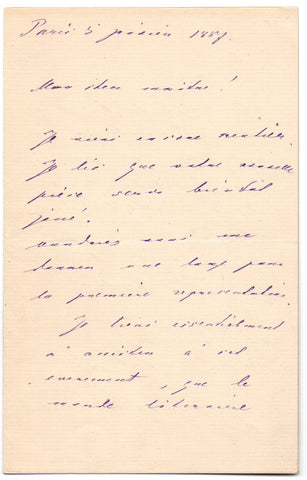 Paris 5 janvier 1887.
Mon cher maître!
Je viens
Je lis que votre nouvelle
pièce sera bientôt
joué.
voudriez vous me
donner une loge pour
la première représentation.
Je tiens essentiellement
à assister à cet
evenement, que le
monde literaire